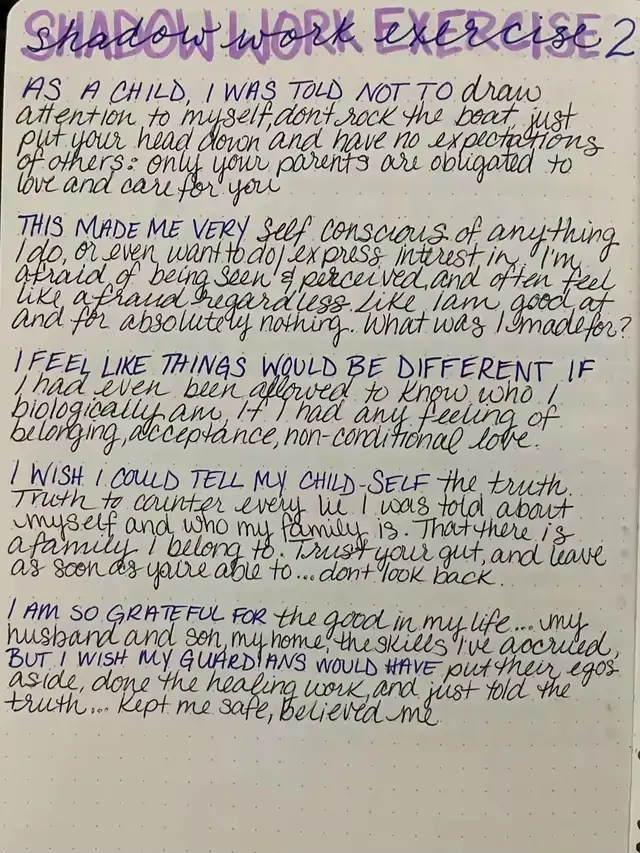 SHADOW WORK EXERCISE
shadow work exercise 2
AS A CHILD, I WAS TOLD NOT TO draw
attention to myself, don't rock the boat, just
put your head down and have no expectations
of others: only your parents are obligated to
love and care for you
THIS MADE ME VERY self conscious of anything
I do, or even want to do/express interest in. I'm
afraid of being seen & perceived, and often feel
like a fraud regardless. Like I am good at
and for absolutely nothing. What was I made for?
I FEEL LIKE THINGS WOULD BE DIFFERENT IF
I had even been allowed to know who I
biologically am. If I had any feeling of
belonging, acceptance, non-conditional love.
I WISH I COULD TELL MY CHILD-SELF the truth.
Truth to counter every lie I was told about
myself and who my family is. That there is
a family I belong to. Trust your gut, and leave
as soon as you're able to... don't look back.
I AM SO GRATEFUL FOR the good in my life... my
husband and son, my home, the skills I've accrued,
BUT I WISH MY GUARDIANS WOULD HAVE put their egos
aside, done the healing work, and just told the
truth... Kept me safe, believed me